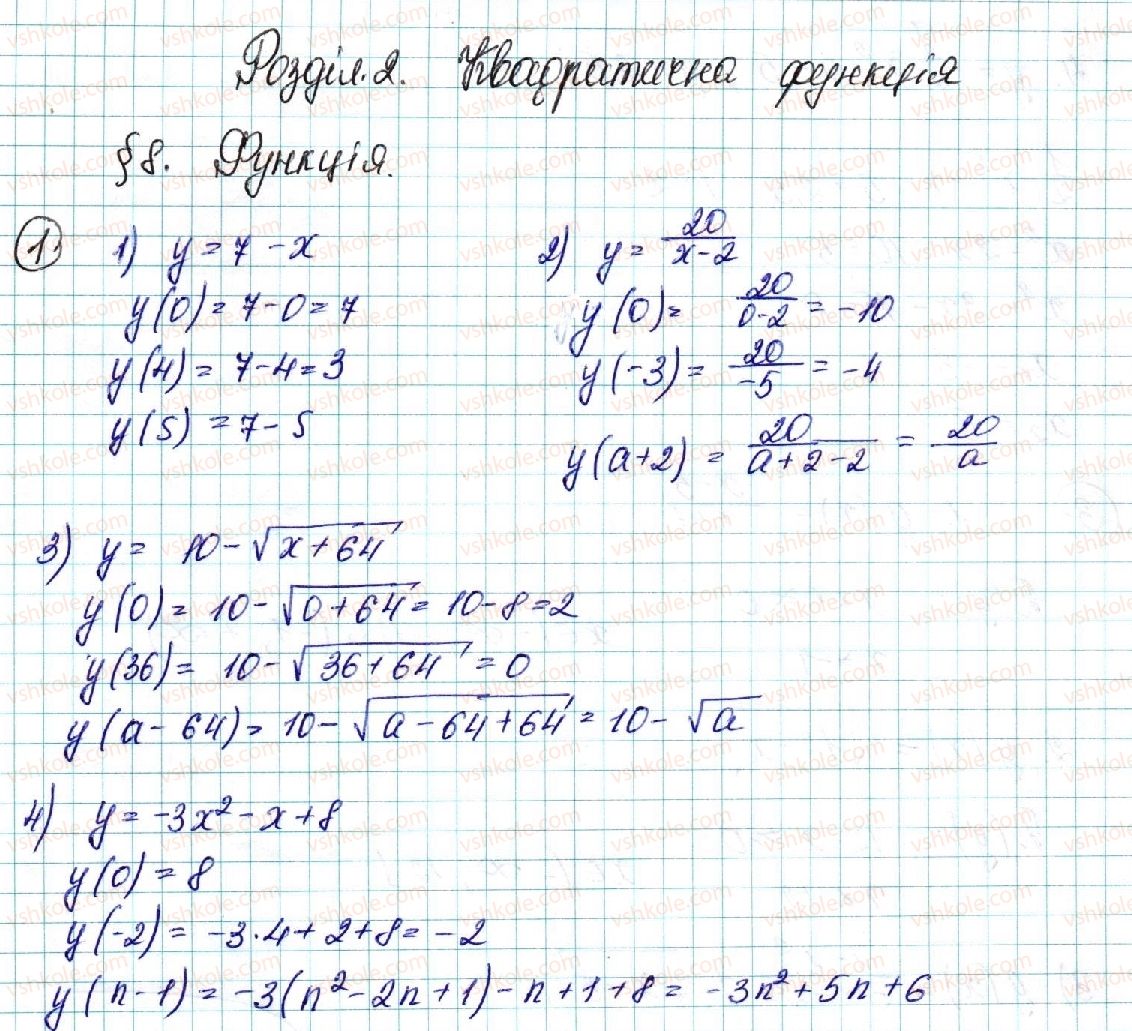 Розділ 2. Квадратична функція
§8. Функція.
1.
1) y = 7 - x
y(0) = 7 - 0 = 7
y(4) = 7 - 4 = 3
y(5) = 7 - 5
2) y = 20/(x - 2)
y(0) = 20/(0 - 2) = -10
y(-3) = 20/(-5) = -4
y(a+2) = 20/(a + 2 - 2) = 20/a
3) y = 10 - √(x + 64)
y(0) = 10 - √(0 + 64) = 10 - 8 = 2
y(36) = 10 - √(36 + 64) = 0
y(a - 64) = 10 - √(a - 64 + 64) = 10 - √a
4) y = -3x² - x + 8
y(0) = 8
y(-2) = -3·4 + 2 + 8 = -2
y(n - 1) = -3(n² - 2n + 1) - n + 1 + 8 = -3n² + 5n + 6
vshkole.com